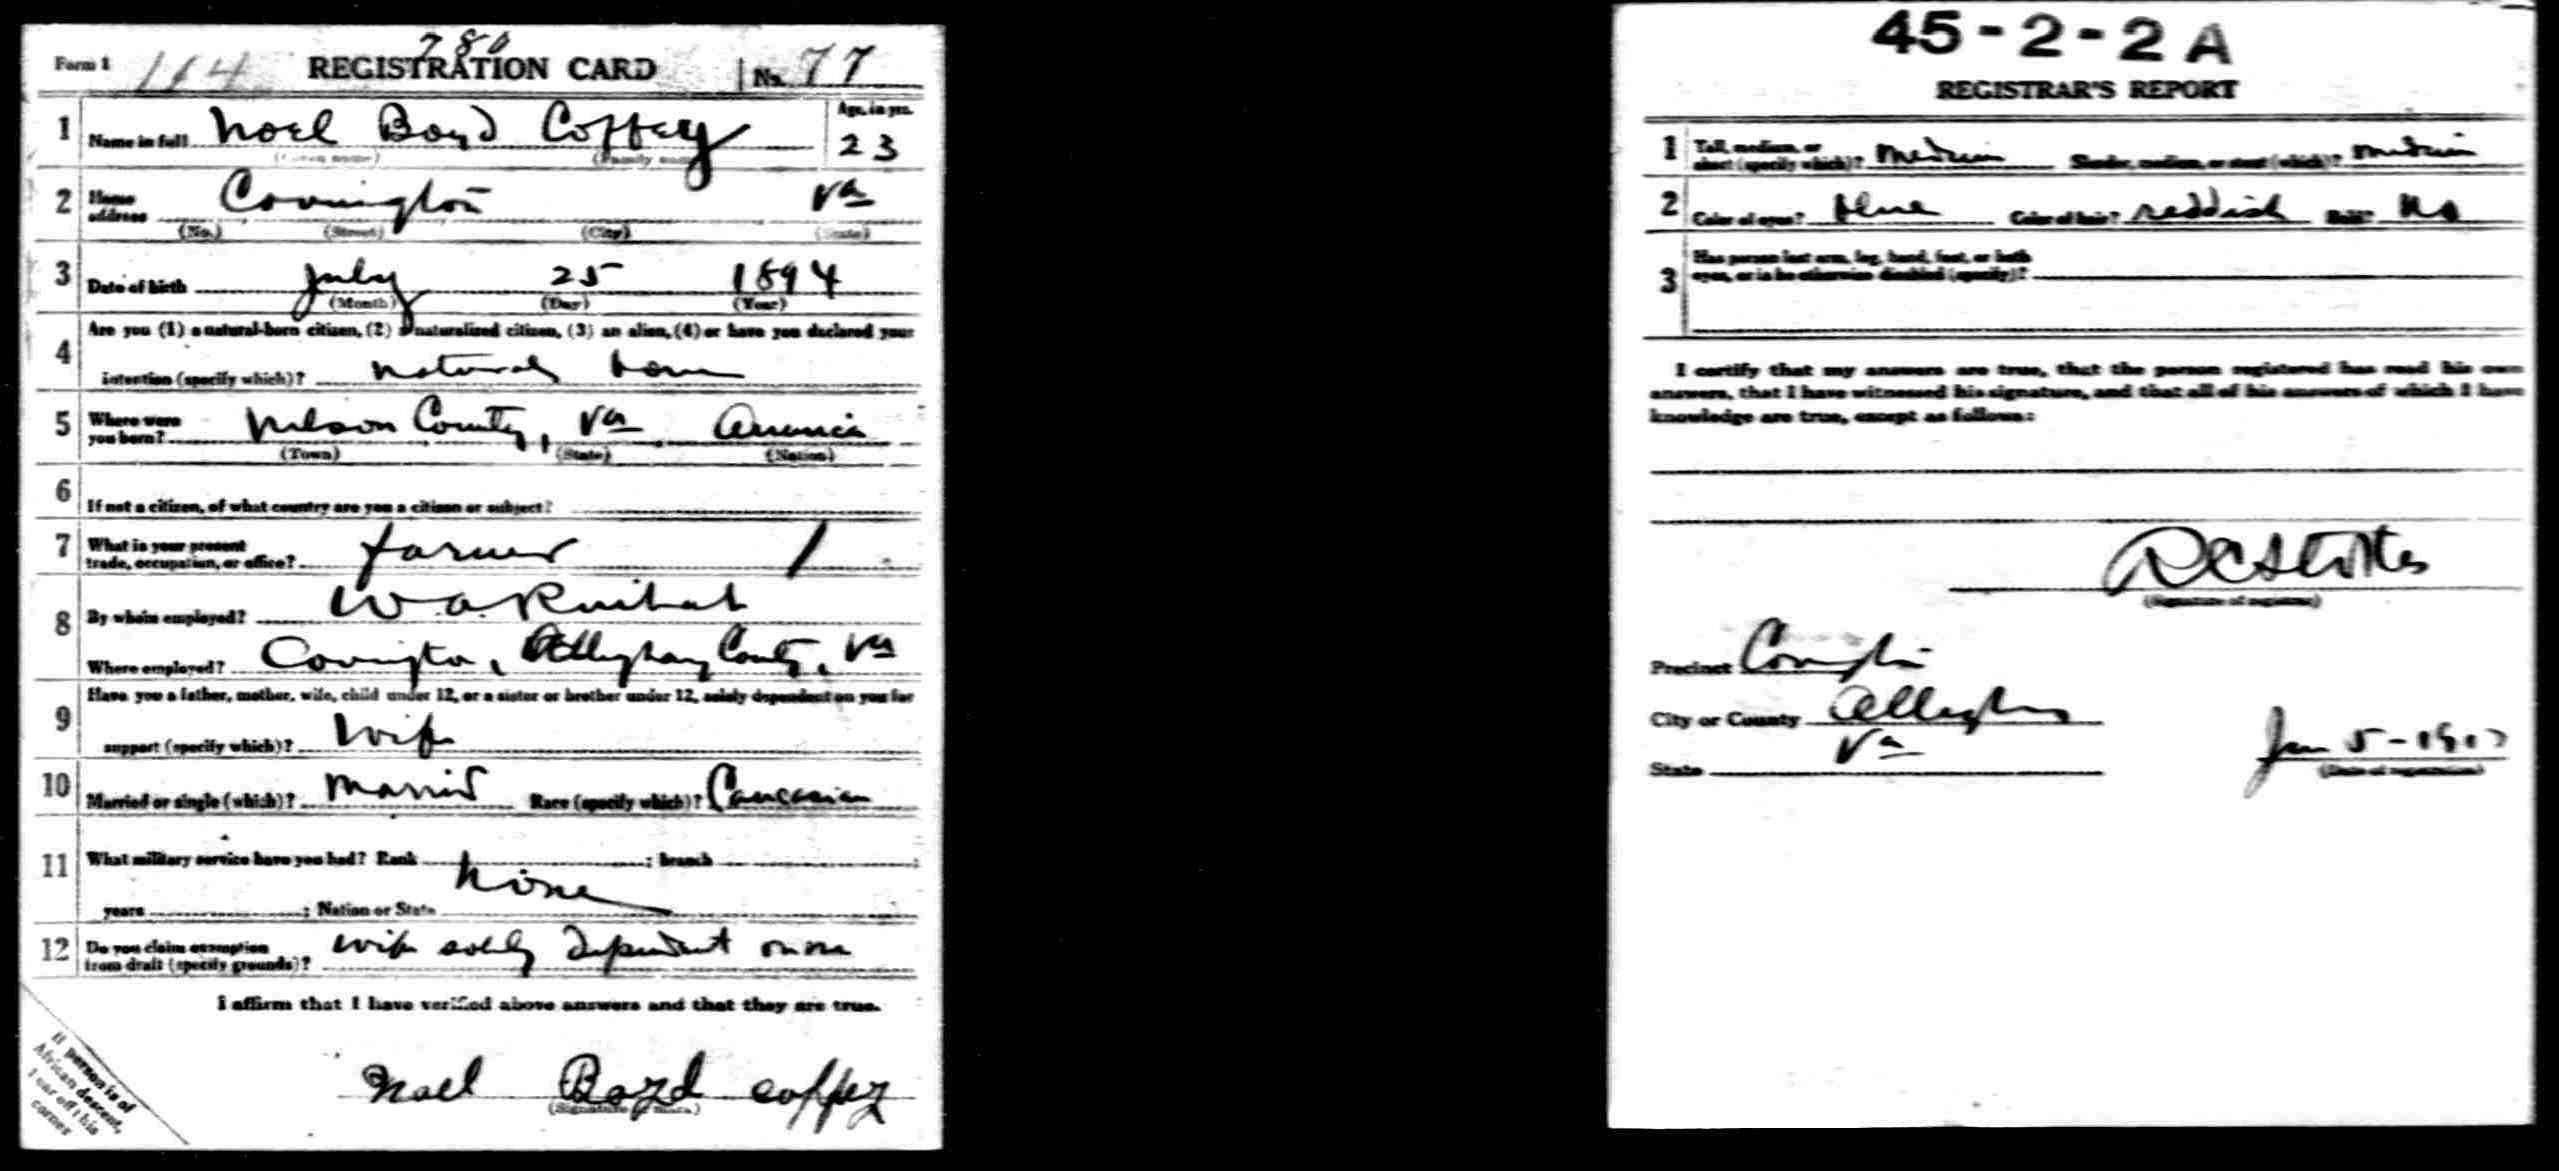 780
Form 1 164 REGISTRATION CARD No. 77
1 Name in full Noel Boyd Coffey Age, in yrs. 23
(Given name) (Family name)
2 Home address Covington Va
(No.) (Street) (City) (State)
3 Date of birth July 25 1894
(Month) (Day) (Year)
4 Are you (1) a natural-born citizen, (2) a naturalized citizen, (3) an alien, (4) or have you declared your
intention (specify which)? natural born
5 Where were you born? Nelson County, Va America
(Town) (State) (Nation)
6 If not a citizen, of what country are you a citizen or subject?
7 What is your present trade, occupation, or office? farmer
8 By whom employed? W. A.
Where employed? Covington, Alleghany County, Va
9 Have you a father, mother, wife, child under 12, or a sister or brother under 12, solely dependent on you for
support (specify which)? Wife
10 Married or single (which)? Married Race (specify which)? Caucasian
11 What military service have you had? Rank ; branch ;
None
years ; Nation or State
12 Do you claim exemption from draft (specify grounds)? wife solely dependent on me
I affirm that I have verified above answers and that they are true.
Noel Boyd coffey
(Signature or mark)
If person is of
African descent,
tear off this
corner
45-2-2 A
REGISTRAR'S REPORT
1 Tall, medium, or short (specify which)? medium Slender, medium, or stout (which)? medium
2 Color of eyes? blue Color of hair? reddish Bald? No
3 Has person lost arm, leg, hand, foot, or both
eyes, or is he otherwise disabled (specify)?
I certify that my answers are true, that the person registered has read his own
answers, that I have witnessed his signature, and that all of his answers of which I have
knowledge are true, except as follows:
R C Stokes
(Signature of registrar)
Precinct Covington
City or County Alleghany
State Va
Jun 5-1917
(Date of registration)